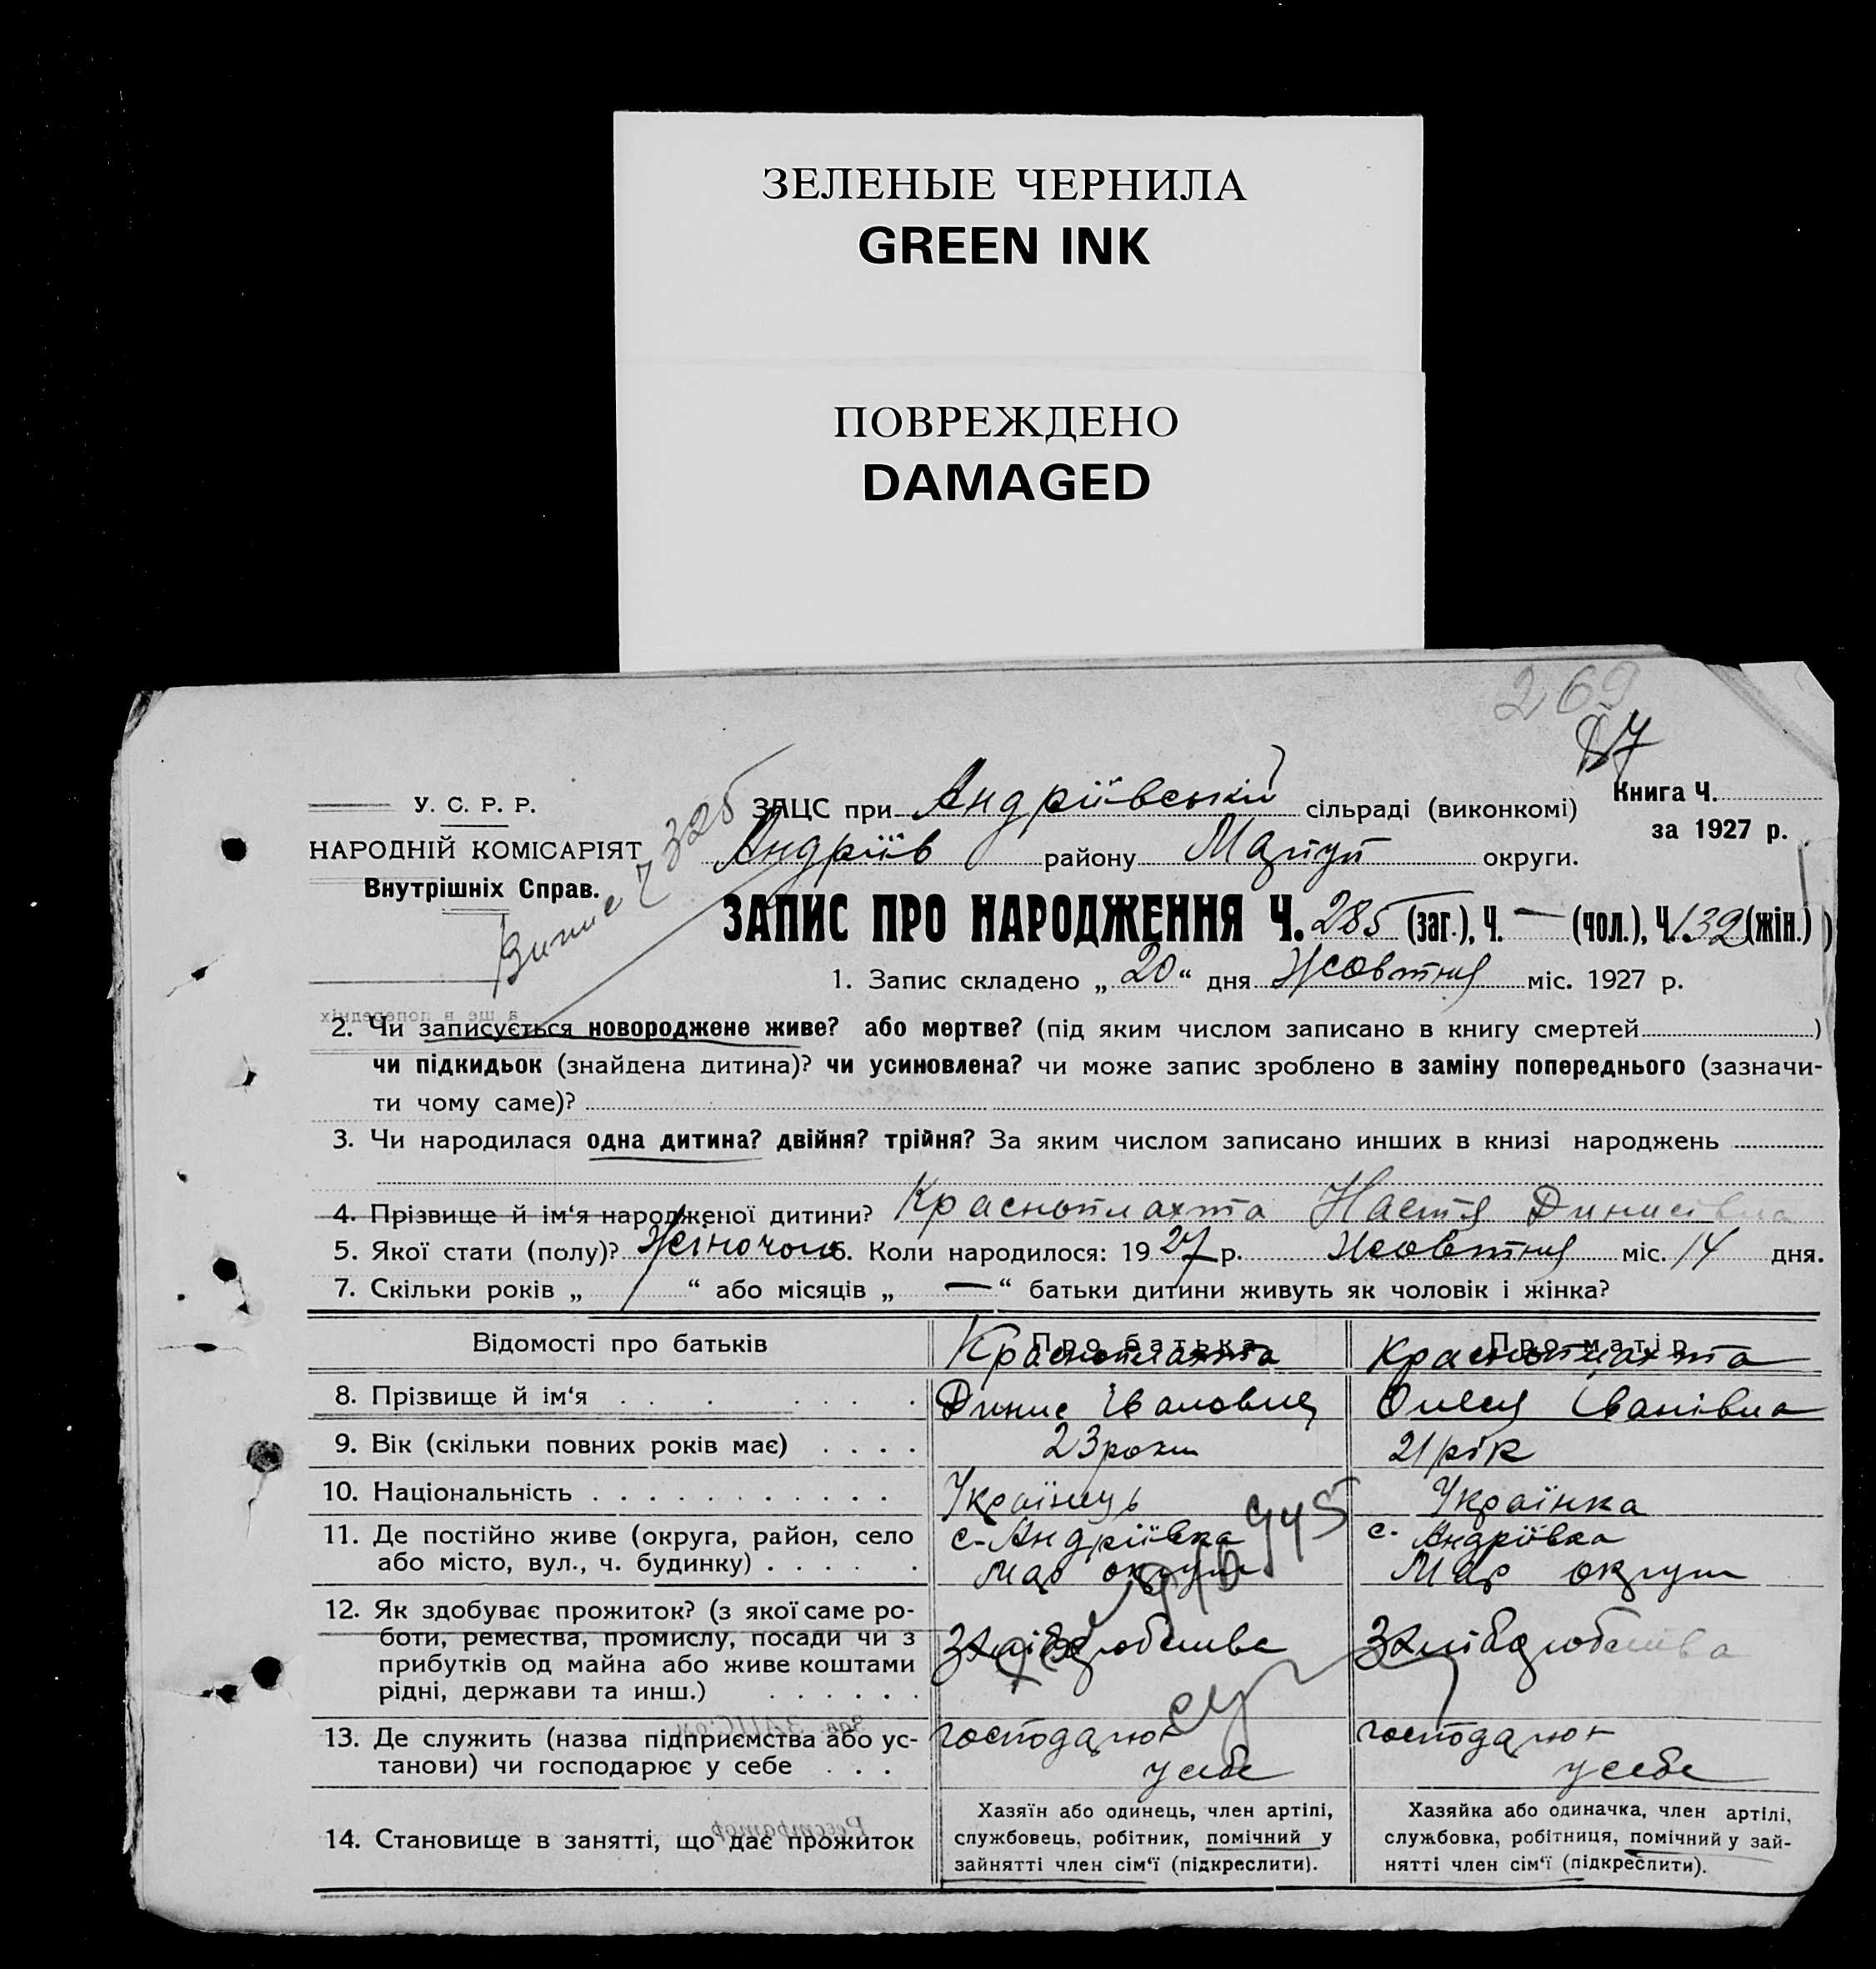 ЗЕЛЕНЫЕ ЧЕРНИЛА
GREEN INK
ПОВРЕЖДЕНО
DAMAGED
269
У. С. Р. Р.
НАРОДНІЙ КОМІСАРІЯТ
Внутрішніх Справ.
ЗАЦС при Андріївській сільраді (виконкомі)
Книга Ч.
за 1927 р.
Андріїв району Маріуп округи.
ЗАПИС ПРО НАРОДЖЕННЯ Ч. 285 (заг.), Ч. — (чол.), Ч. 139 (жін.)
1. Запис складено „20“ дня Жовтня міс. 1927 р.
2. Чи записується новороджене живе? або мертве? (під яким числом записано в книгу смертей )
чи підкидьок (знайдена дитина)? чи усиновлена? чи може запис зроблено в заміну попереднього (зазначи-
ти чому саме)?
3. Чи народилася одна дитина? двійня? трійня? За яким числом записано инших в книзі народжень
4. Прізвище й ім‘я народженої дитини? Красноплахта Настя Динисівна
5. Якої стати (полу)? Жіночои 6. Коли народилося: 1927 р. жовтня міс. 14 дня.
7. Скільки років „ / “ або місяців „ — “ батьки дитини живуть як чоловік і жінка?
Відомості про батьків Про батька Про матір
Красноплахта Красноплахта
8. Прізвище й ім‘я Динис Іванович Олися Іванівна
9. Вік (скільки повних років має) 23 роки 21 рік
10. Національність Українець Українка
11. Де постійно живе (округа, район, село с. Андріївка с. Андріївка
або місто, вул., ч. будинку) Мар округи Мар округи
12. Як здобуває прожиток? (з якої саме ро-
боти, ремества, промислу, посади чи з хліборобства хліборобства
прибутків од майна або живе коштами
рідні, держави та инш.)
13. Де служить (назва підприємства або ус- господарює господарює
танови) чи господарює у себе у себе у себе
14. Становище в занятті, що дає прожиток
Хазяїн або одинець, член артілі,
службовець, робітник, помічний у
зайнятті член сім‘ї (підкреслити).
Хазяйка або одиначка, член артілі,
службовка, робітниця, помічний у зай-
нятті член сім‘ї (підкреслити).